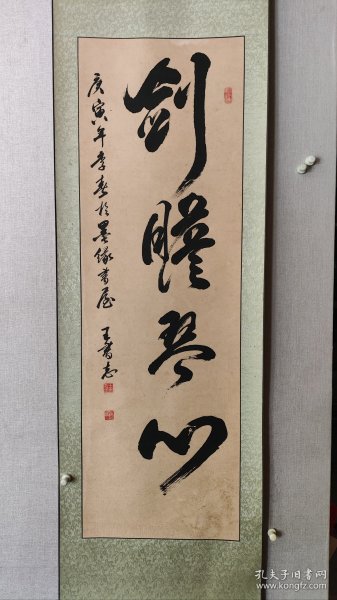 剑胆琴心
庚寅年季春于墨缘书屋 王书志
孔夫子旧书网
www.kongfz.com